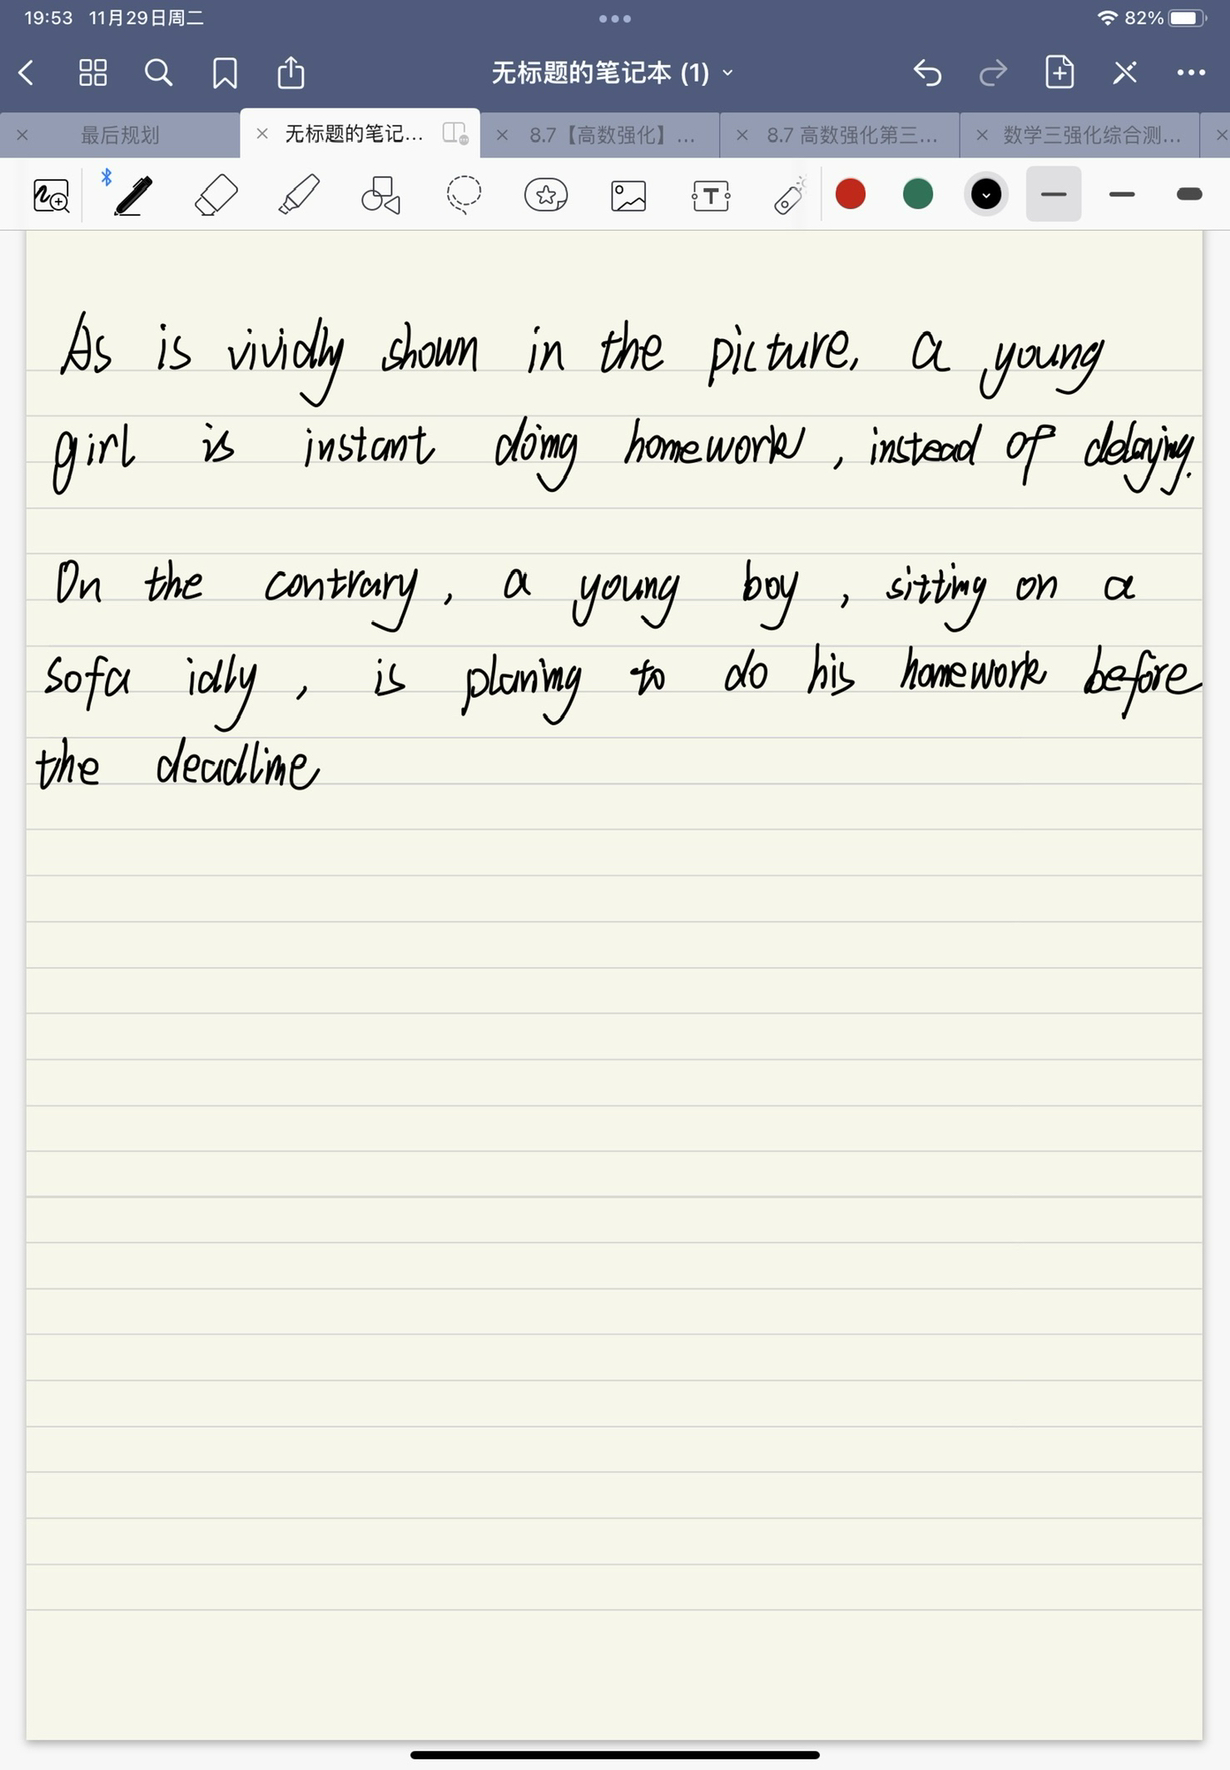 19:53 11月29日周二
82%
无标题的笔记本 (1)
最后规划
无标题的笔记...
8.7【高数强化】...
8.7 高数强化第三...
数学三强化综合测...
T
As is vividly shown in the picture, a young
girl is instant doing homework, instead of delaying.
On the contrary, a young boy, sitting on a
sofa idlly, is planing to do his homework before
the deadline